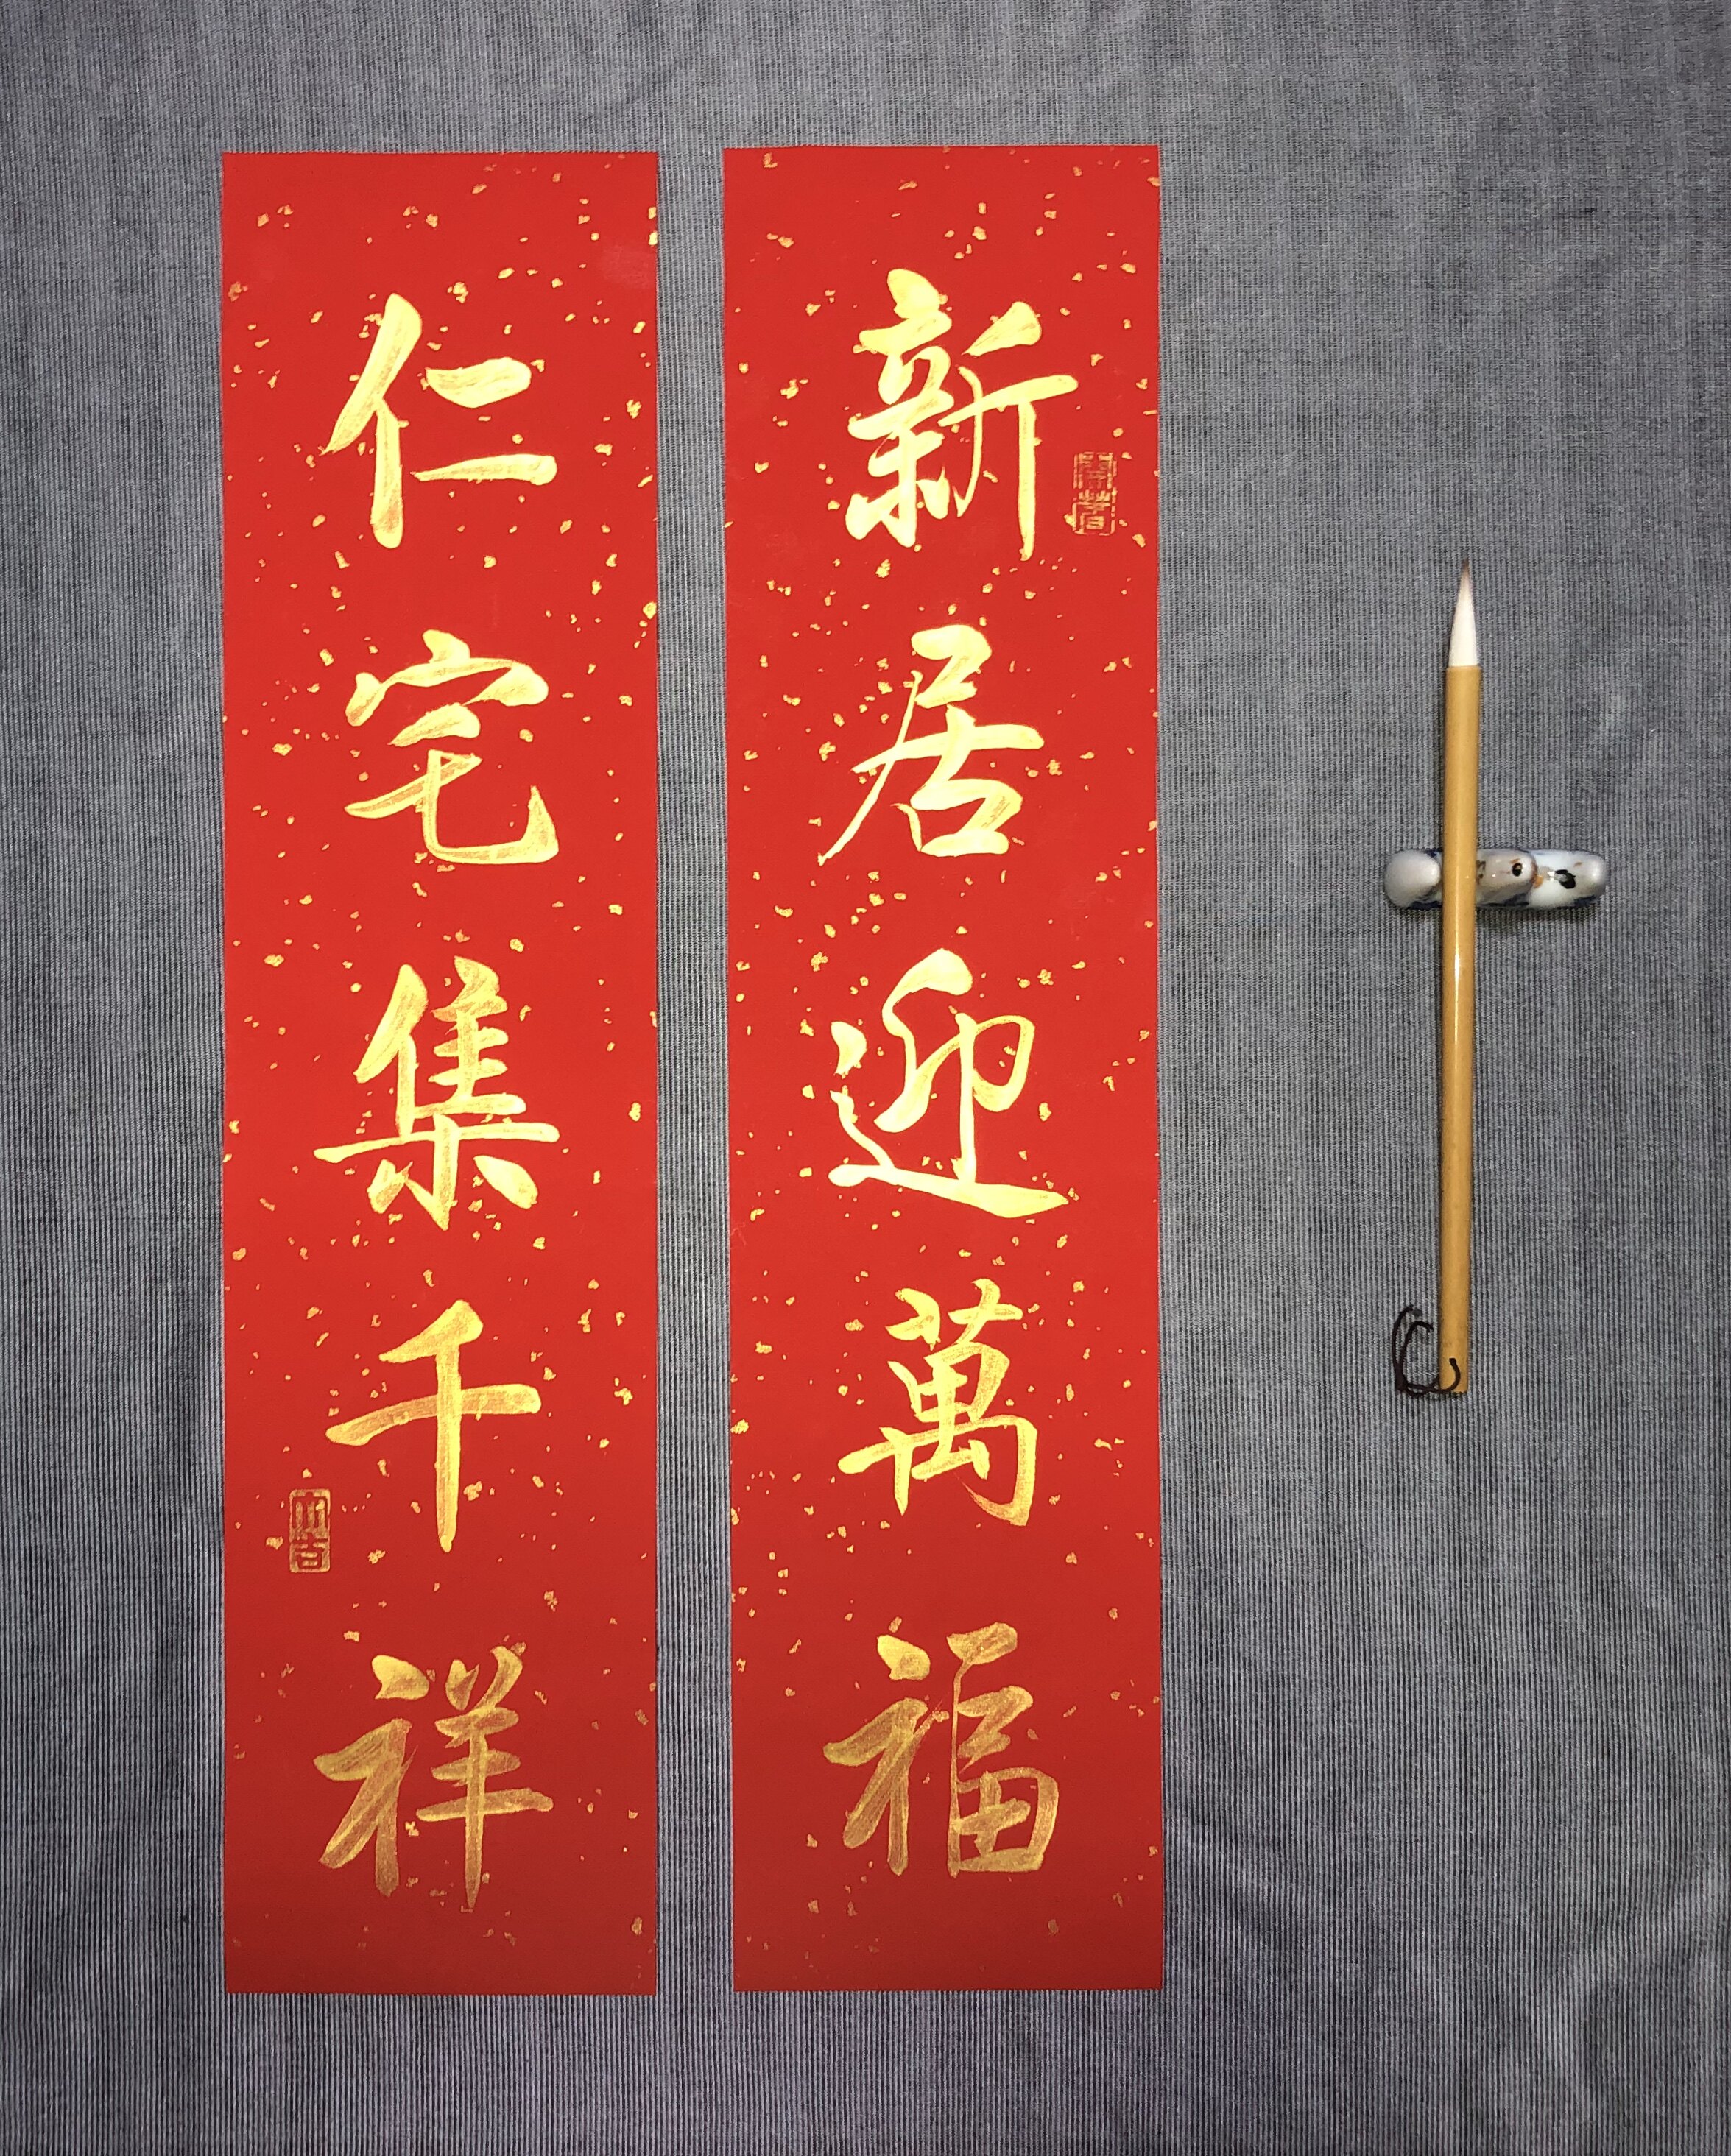 新居迎萬福
仁宅集千祥
大吉